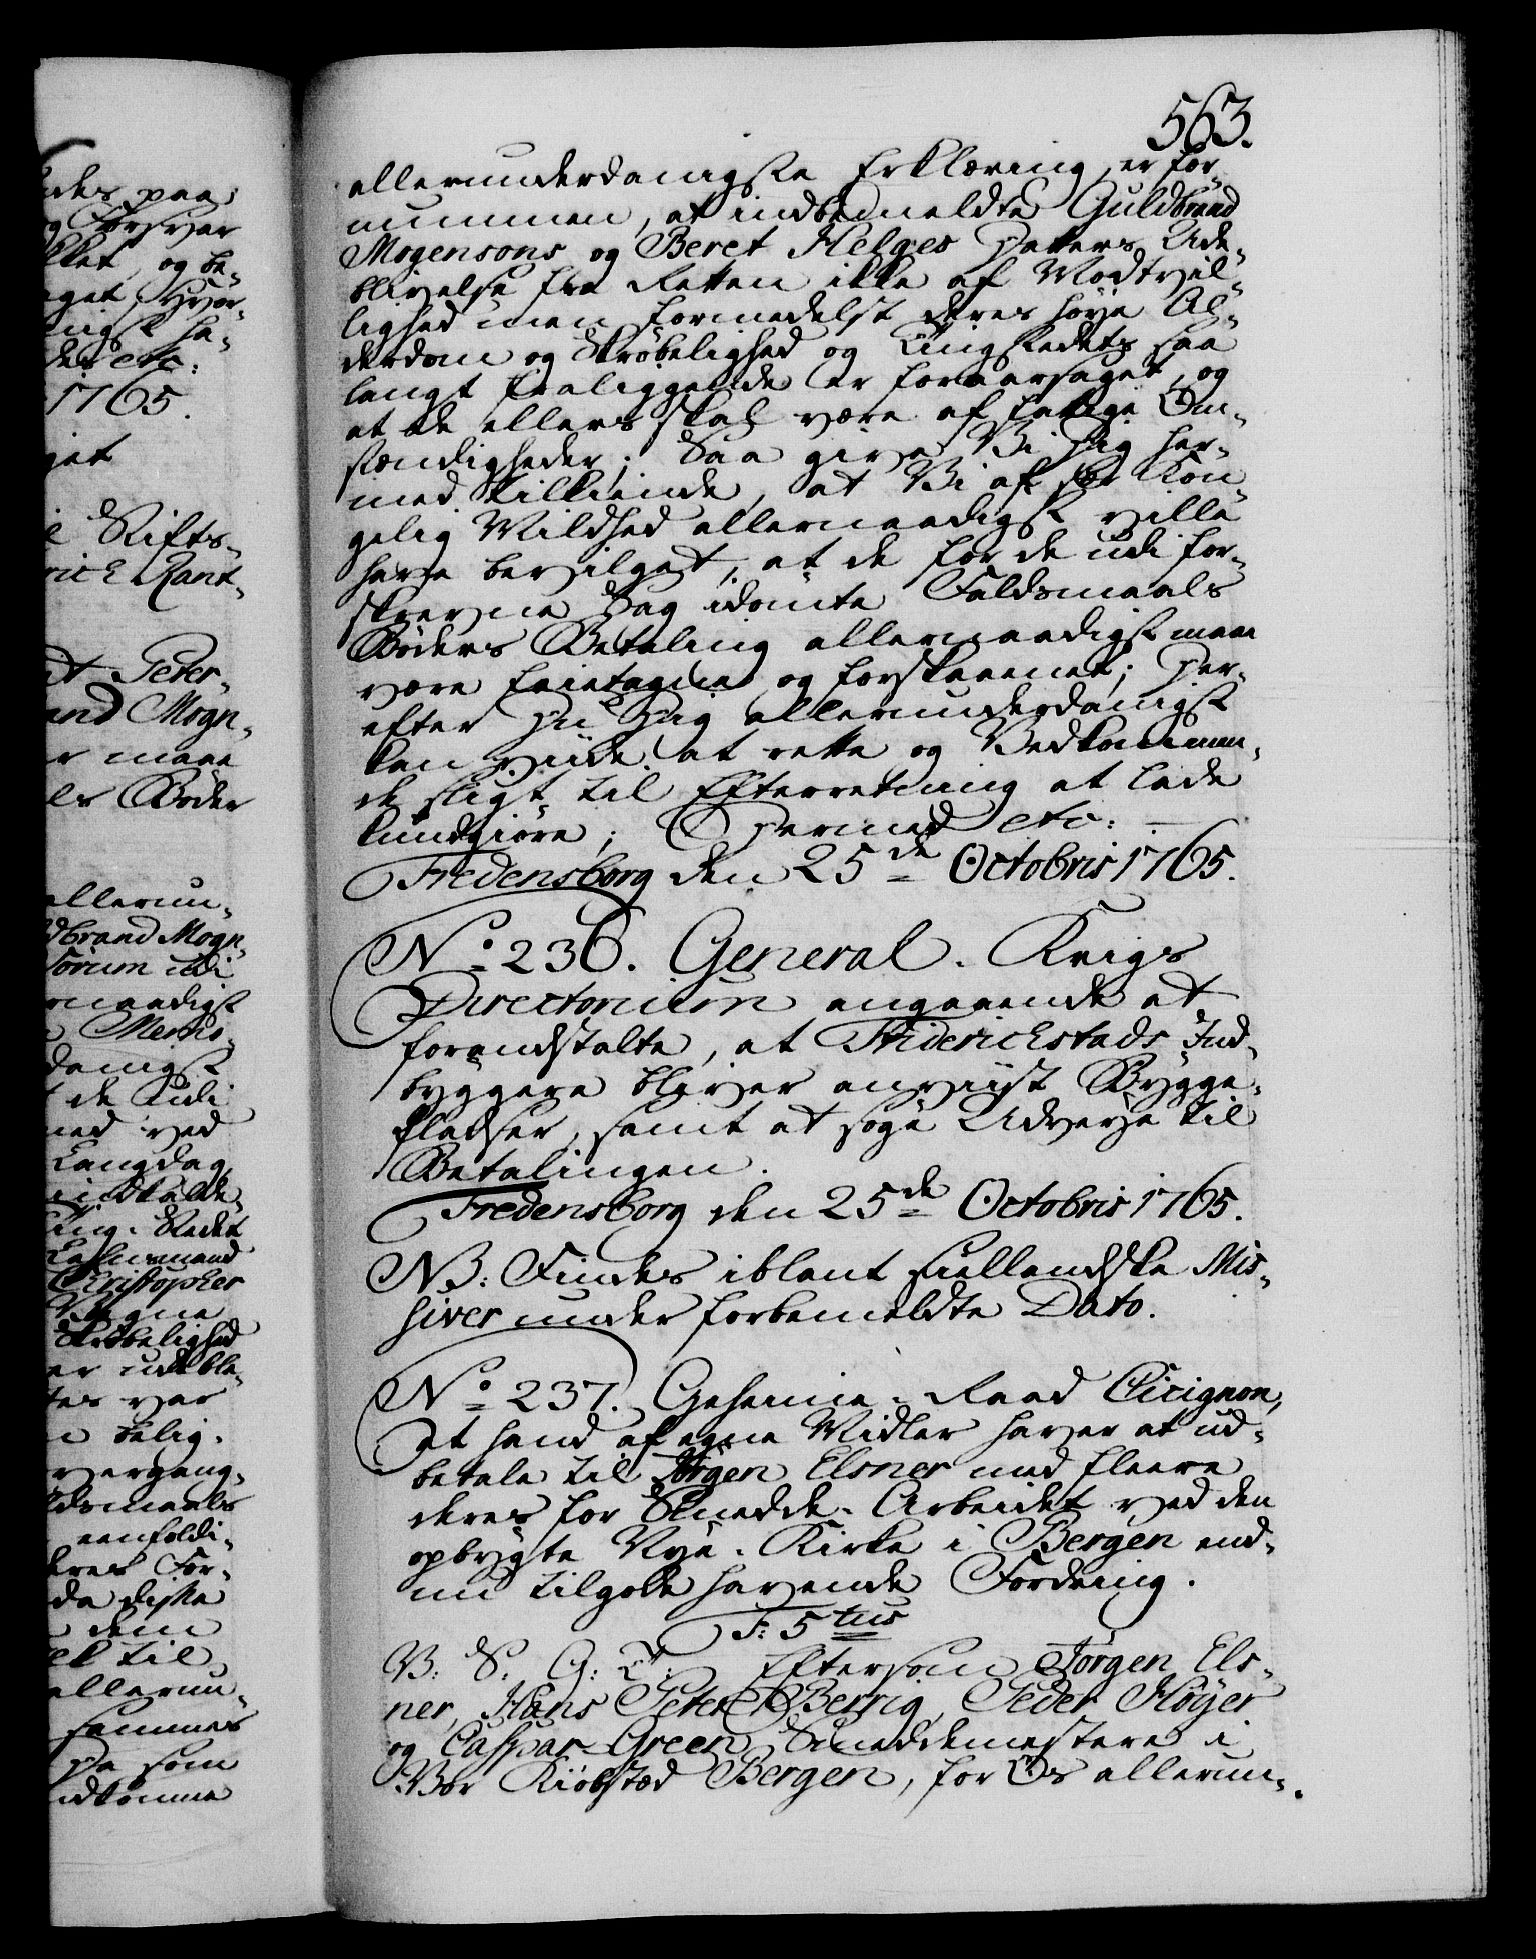 563.
allerunderdanigste Erklæring, er for-
nummen, at indbemeldte Guldbrand
Mogensons og Beret Helges Datters Ude-
blivelse fra Retten ikke af Modtvil-
lighed men formedelst deres høye Al-
derdom og Skrøbelighed og Tingstedets saa
langt fraliggende er foraarsaget, og
at de ellers skal være af fattige Om-
stændigheder; Saa give Vi Dig her-
med tilkiende, at Vi af sær Kon-
gelig Mildhed allernaadigst ville
have bevilget, at de for de udi for-
skrevne Sag idømte Faldsmaals
Bøders Betaling allernaadigst maae
være fritagne og forskaanet; Der-
efter Du Dig allerunderdanigst
kan viide at rette og Vedkommen-
de sligt til Efterretning at lade
kundgiøre; Dermed etc:
Fredensborg den 25de Octobris 1765.
No 236. General-Krigs
Directorium angaaende at
foranstalte, at Friderichstads Ind-
byggere bliver anviist Bygge-
Pladser, samt at søge Udveje til
Betalingen.
Fredensborg den 25de Octobris 1765.
NB: Findes iblant Siellandske Mis-
siver under forbemeldte Dato.
No 237. Geheime-Raad Cicignon,
At hand af egne Midler haver at ud-
betale til Jørgen Elsner med fleere
deres for Smedde-Arbeidet ved den
opbygte Nye-Kirke i Bergen end-
nu tilgode havende Fordring.
F: 5tus
V: S: G: T: Eftersom Jørgen Els-
ner, Hans Peter Berrig, Peder Høyer
og Caspar Green, Smeddemestere i
Vor Kiøbsted Bergen, for Os allerun-